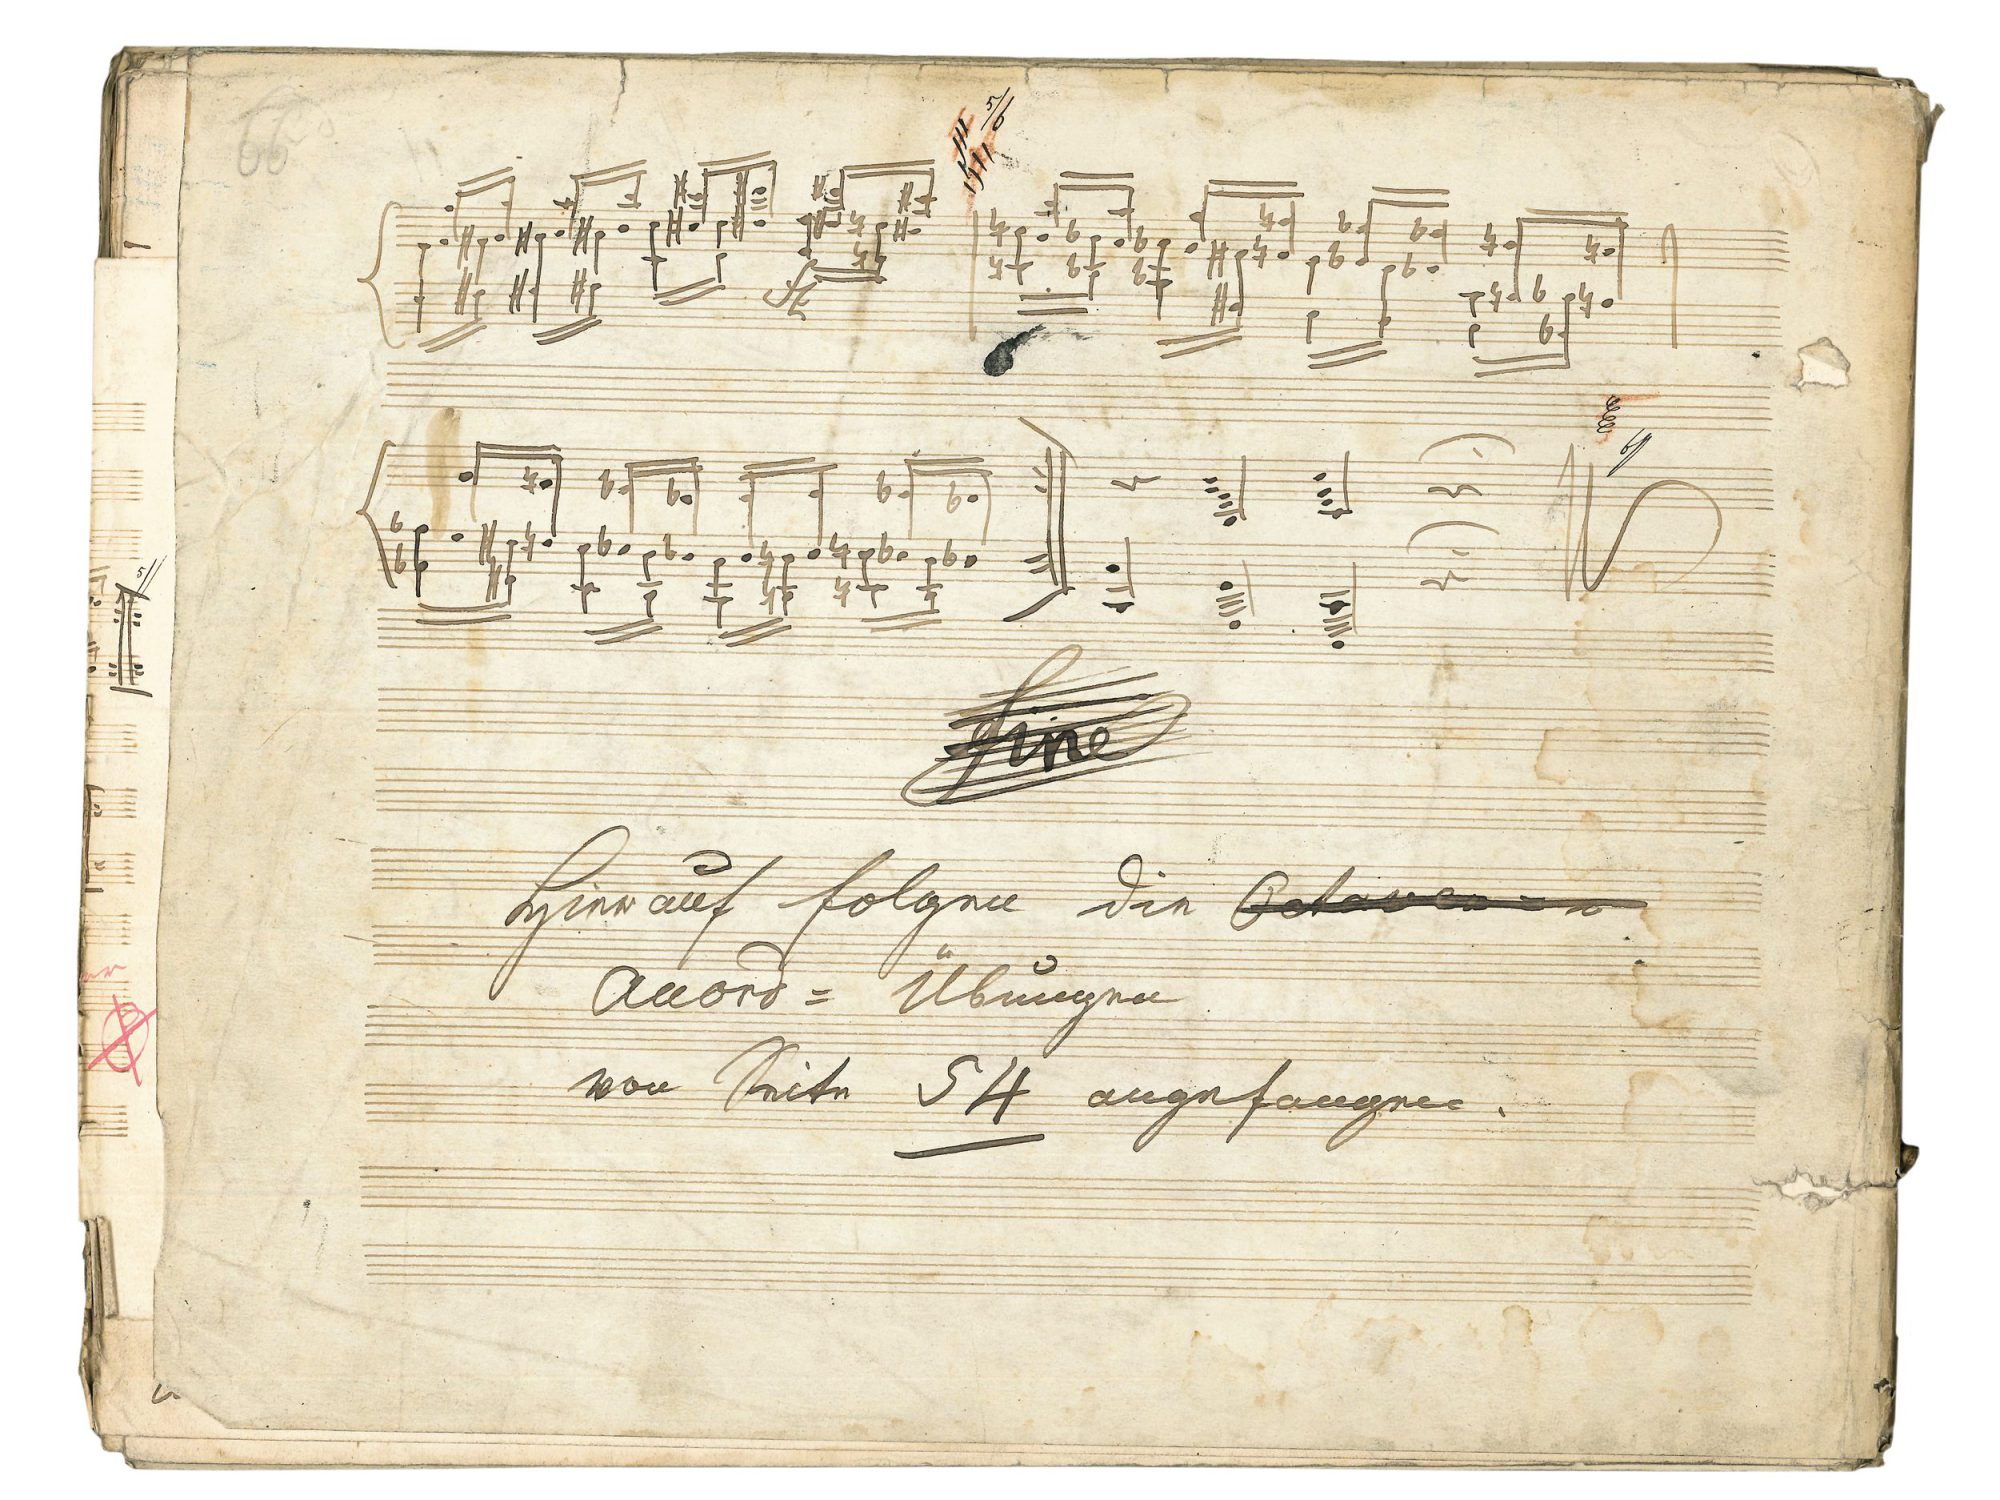 66
5/6
6/
5/
fine
Hierauf folgen die Octaven =
Accord = Übungen
von Seite 54 angefangen.